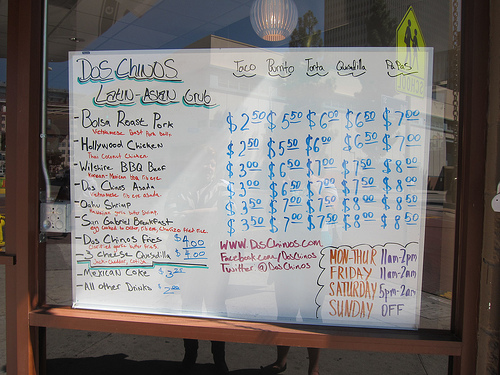 Dos Chinos
Latin-Asian Grub
Taco Burrito Torta Quesadilla Papas
- Bolsa Roast Pork $2.50 $5.50 $6.00 $6.50 $7.00
Vietnamese Roast Pork
- Hollywood Chicken $2.50 $5.50 $6.00 $6.50 $7.00
Thai Coconut Chicken
- Wilshire BBQ Beef $3.00 $6.50 $7.00 $7.50 $8.00
- Dos Chinos Asada
- Oahu Shrimp
- San Gabriel Breakfast $3.50 $7.00 $7.50 $8.00 $8.50
- Dos Chinos Fries $4.00
- 3 Cheese Quesadilla $4.00
- Mexican Coke
- All other Drinks
www.DosChinos.com
Facebook.com/DosChinos
Twitter @DosChinos
MON-THUR 11am-2pm
FRIDAY 11am-2am
SATURDAY 5pm-2am
SUNDAY OFF